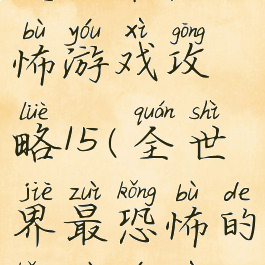 bù yóu xì gōng
怖游戏攻
lüè quán shì
略15(全世
jiè zuì kǒng bù de
界最恐怖的